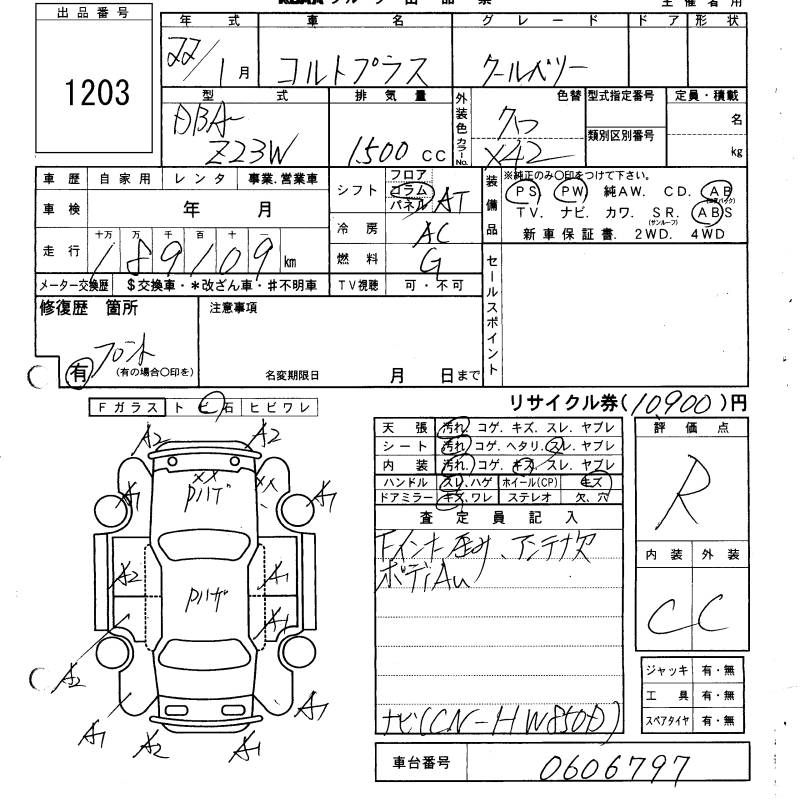 出品番号
1203
年式 車名 グレード ドア 形状
22/1月 コルトプラス クールベリー
型式 排気量 外装色 色替 型式指定番号 定員・積載
DBA-
Z23W 1500cc カラーNo. X42 類別区別番号 名 kg
車歴 自家用 レンタ 事業.営業車
車検 年 月
走行 十万 万 千 百 十 一
189109km
メーター交換歴 $交換車・*改ざん車・#不明車
シフト フロア コラム パネル AT
冷房 AC
燃料 G
TV視聴 可・不可
装備品 ※純正のみ○印をつけて下さい。
PS PW 純AW. CD. AB(エアバック)
TV. ナビ. カワ. SR.(サンルーフ) ABS
新車保証書. 2WD. 4WD
修復歴 箇所
フロント
有 (有の場合○印を)
注意事項
名変期限日 月 日まで
セールスポイント
リサイクル券(10,900)円
Fガラス トビ石 ヒビワレ
A2 A2
XX
Pハゲ XX
A1 A1
A2 A1
Pハゲ
A1
A2
A1 A2 A1 A1
天張 汚れ. コゲ. キズ. スレ. ヤブレ
シート 汚れ. コゲ. ヘタリ. スレ. ヤブレ
内装 汚れ. コゲ. キズ. スレ. ヤブレ
ハンドル スレ. ハゲ ホイール(CP) キズ
ドアミラー キズ. ワレ ステレオ 欠. 穴
査定員記入
Fインナー歪み、アンテナ欠
ボディAU
ナビ(CN-HW850D)
評価点
R
内装 外装
C C
ジャッキ 有・無
工具 有・無
スペアタイヤ 有・無
車台番号 0606797